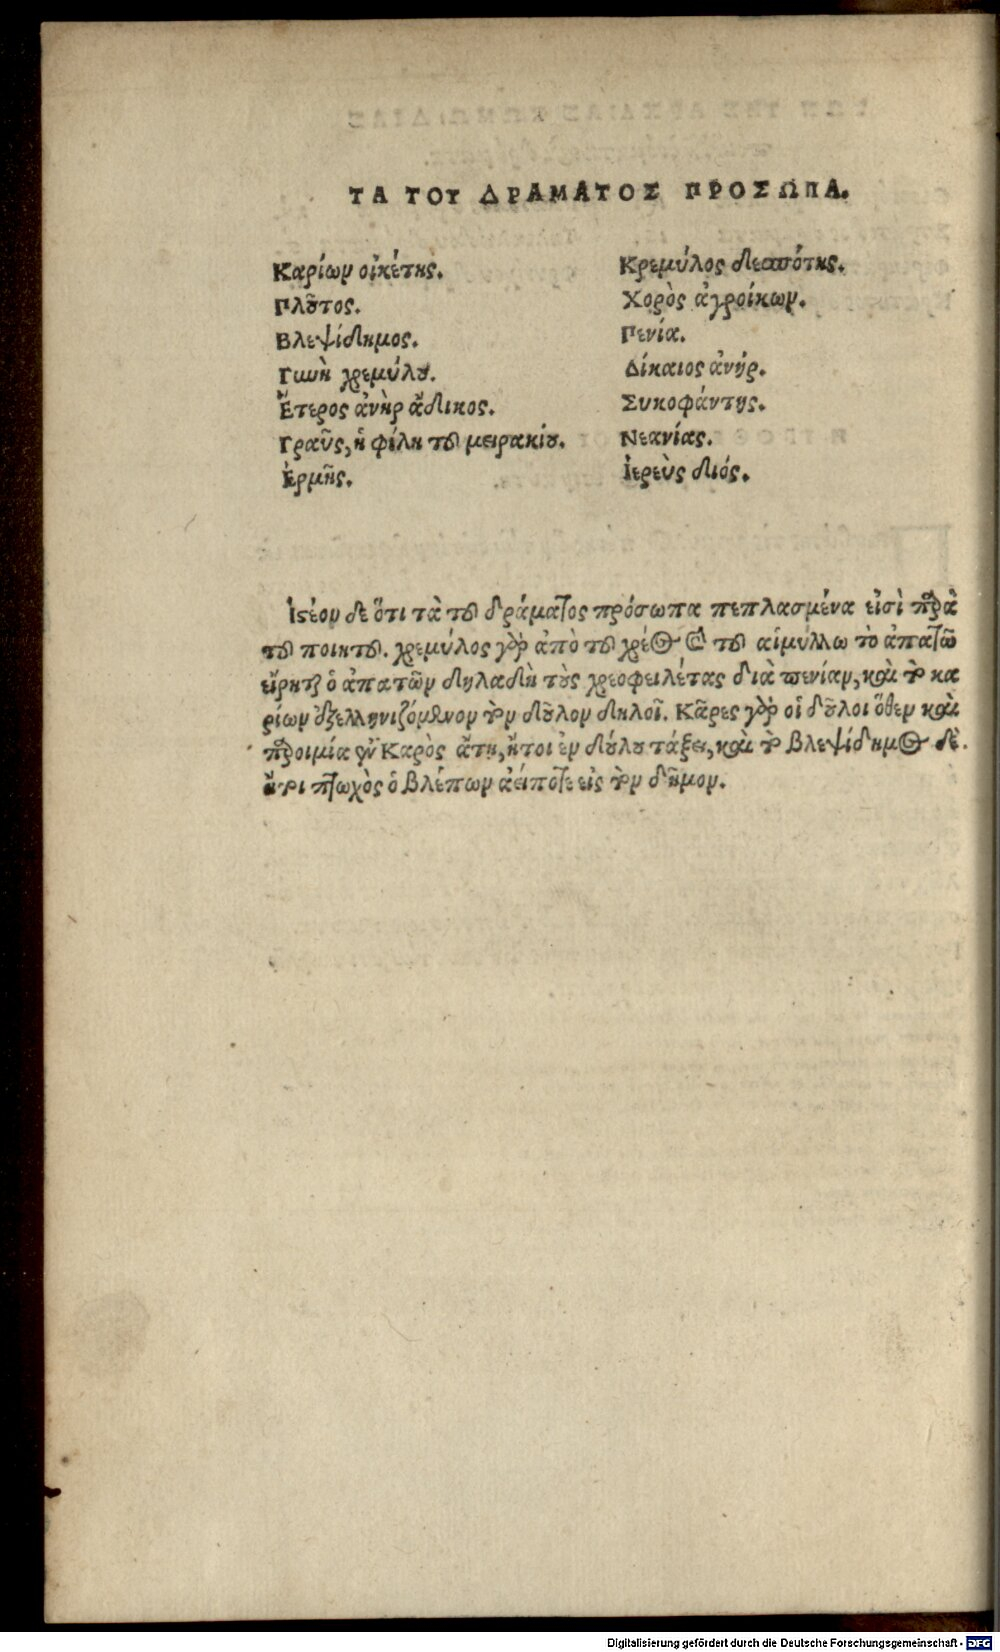 ΤΑ ΤΟΥ ΔΡΑΜΑΤΟΣ ΠΡΟΣΩΠΑ.
Καρίων οἰκέτης.
Πλοῦτος.
Βλεψίδημος.
Γυνὴ χρεμύλου.
Ἕτερος ἀνὴρ ἄδικος.
Γραῦς, ἡ φίλη τοῦ μειρακίου.
Ἑρμῆς.
Κρεμύλος δεσπότης.
Χορὸς ἀγροίκων.
Πενία.
Δίκαιος ἀνήρ.
Συκοφάντης.
Νεανίας.
Ἱερεὺς διός.
Ἰστέον δὲ ὅτι τὰ τοῦ δράματος πρόσωπα πεπλασμένα εἰσὶ παρὰ
τοῦ ποιητοῦ. χρεμύλος γὰρ ἀπὸ τοῦ χρέος καὶ τοῦ αἱμύλλω τὸ ἀπατῶ
εἴρηται ὁ ἀπατῶν δηλαδὴ τοὺς χρεοφειλέτας διὰ πενίαν, καὶ τὸ κα
ρίων ἐξελληνιζόμενον τὸν δοῦλον δηλοῖ. Κᾶρες γὰρ οἱ δοῦλοι ὅθεν καὶ
παροιμία ἐν Καρὸς ἄτη, ἤτοι ἐν δούλου τάξει, καὶ τὸ βλεψίδημος δὲ.
πτωχὸς ὁ βλέπων ἀείποτε εἰς τὸν δῆμον.
Digitalisierung gefördert durch die Deutsche Forschungsgemeinschaft - DFG